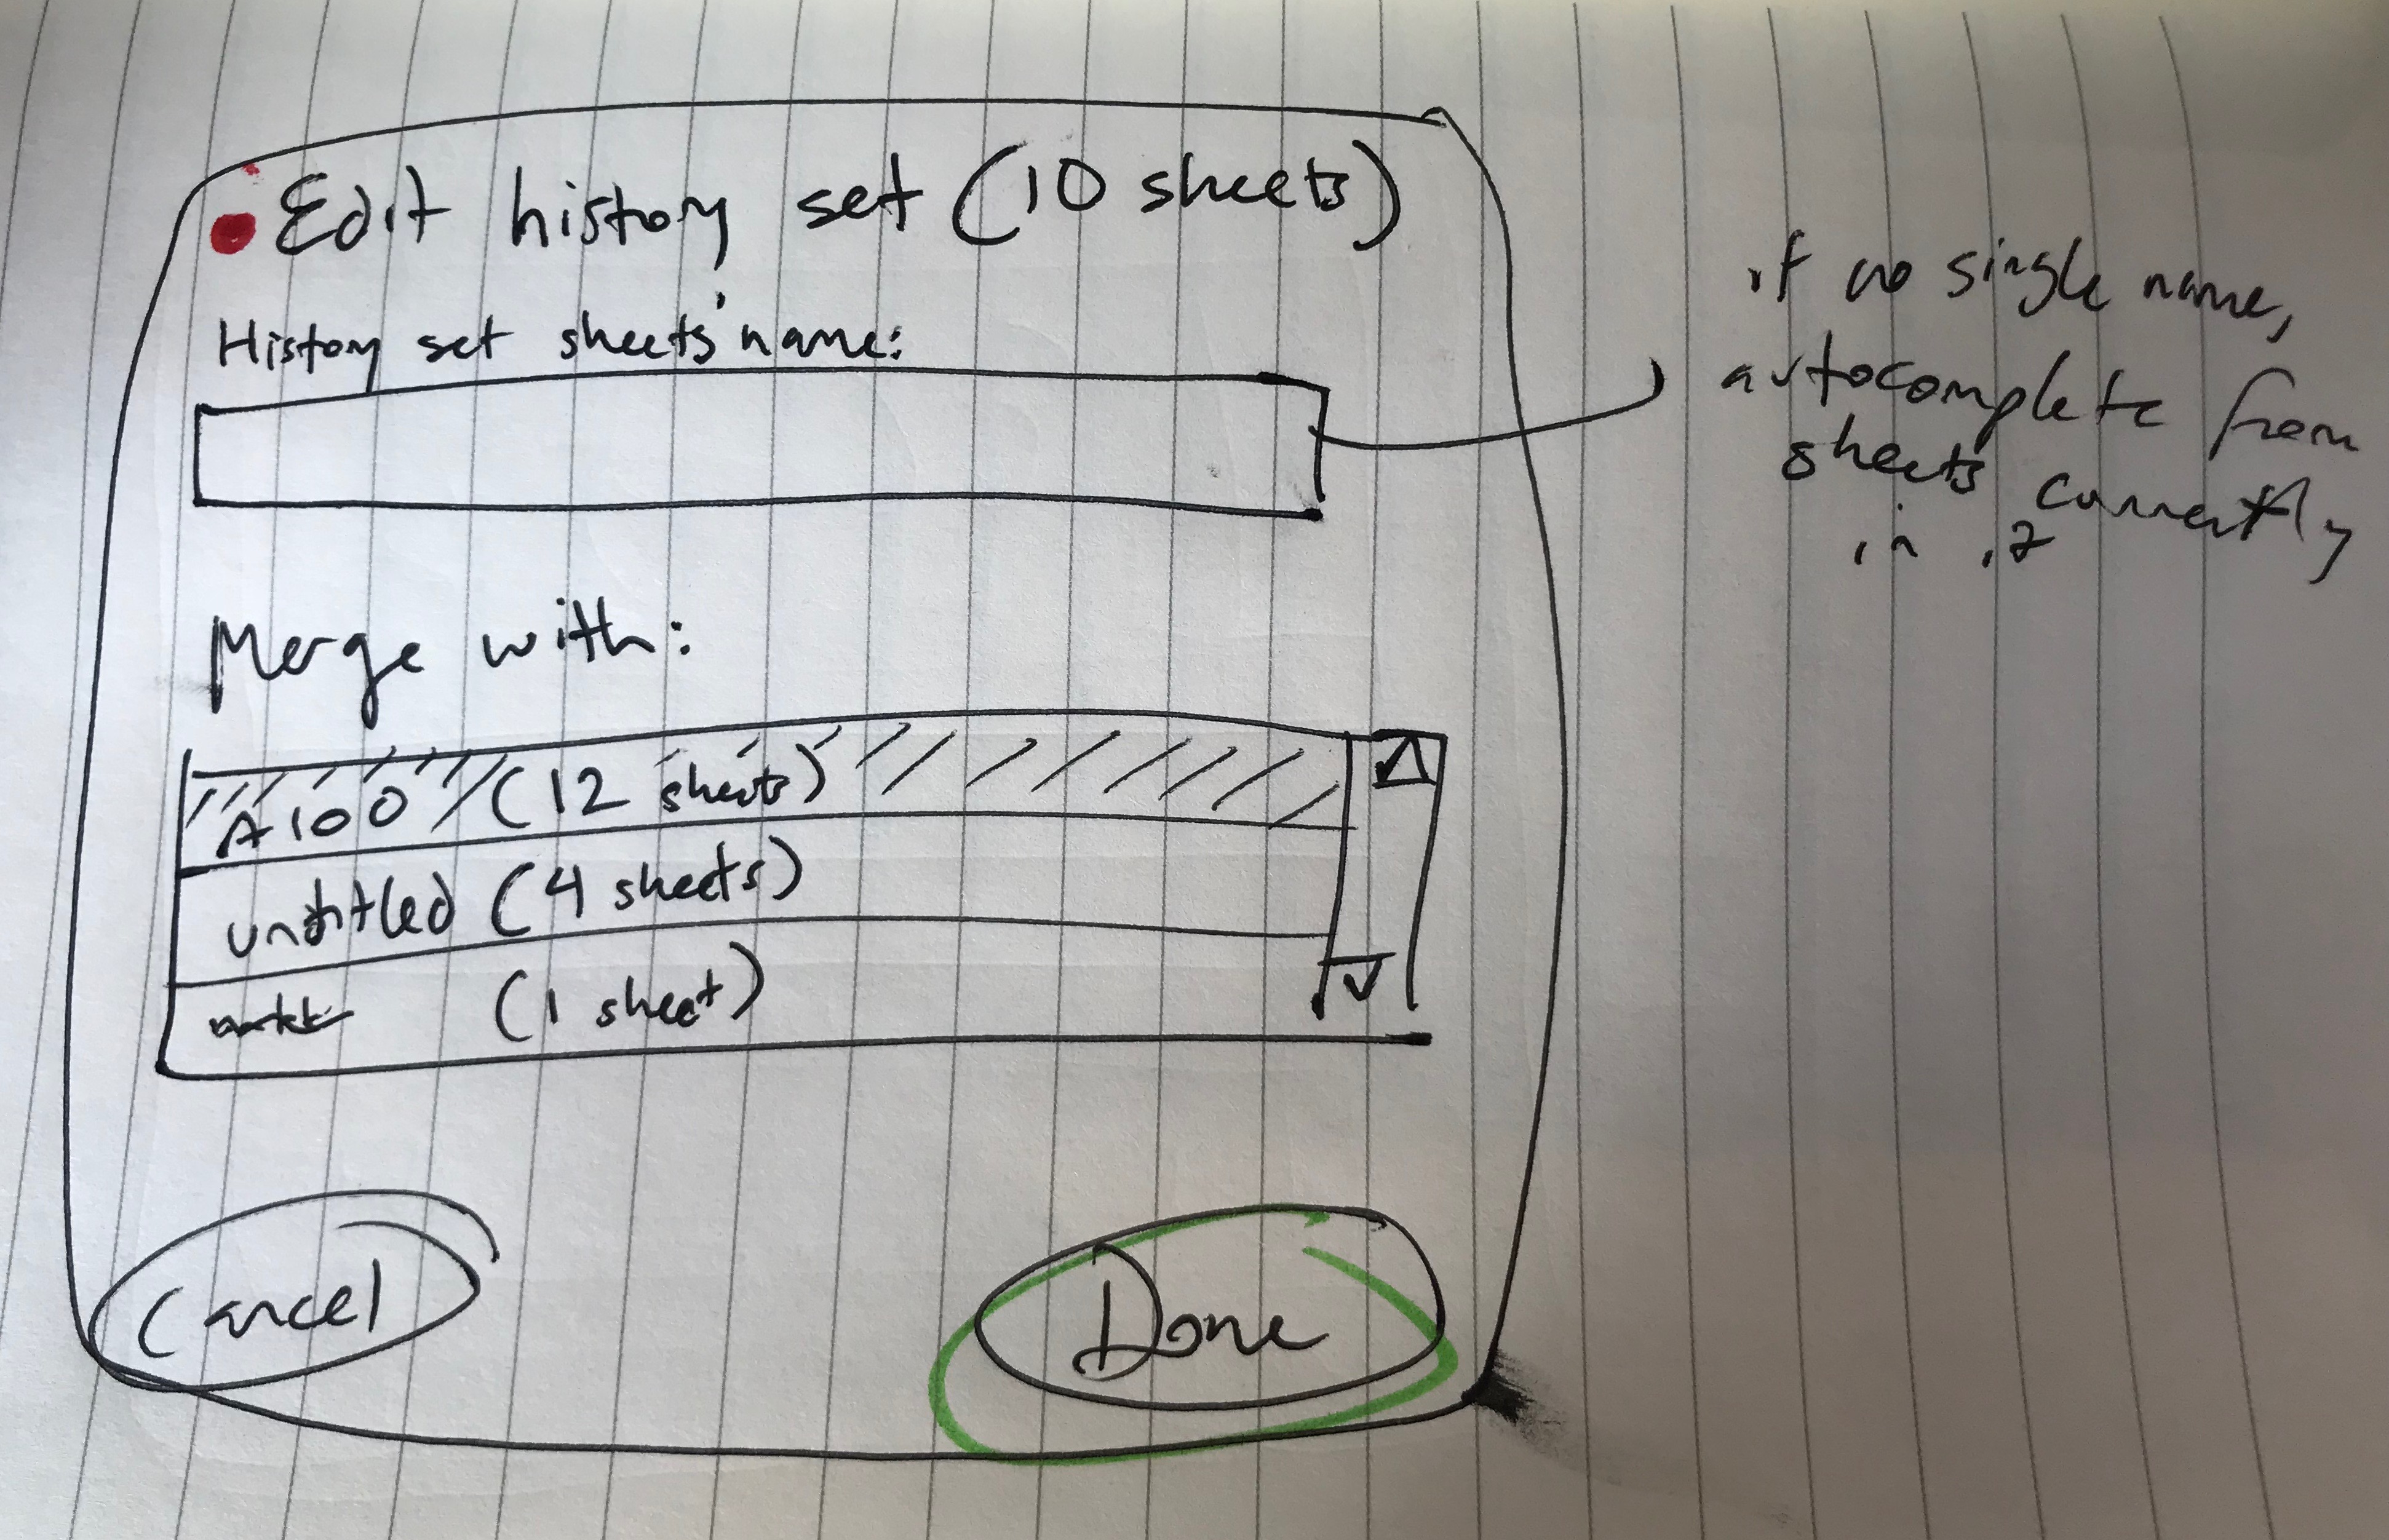 Edit history set (10 sheets)
History set sheets' name:
if no single name,
autocomplete from
sheets currently
in it
Merge with:
A100 (12 sheets)
untitled (4 sheets)
(1 sheet)
Cancel
Done